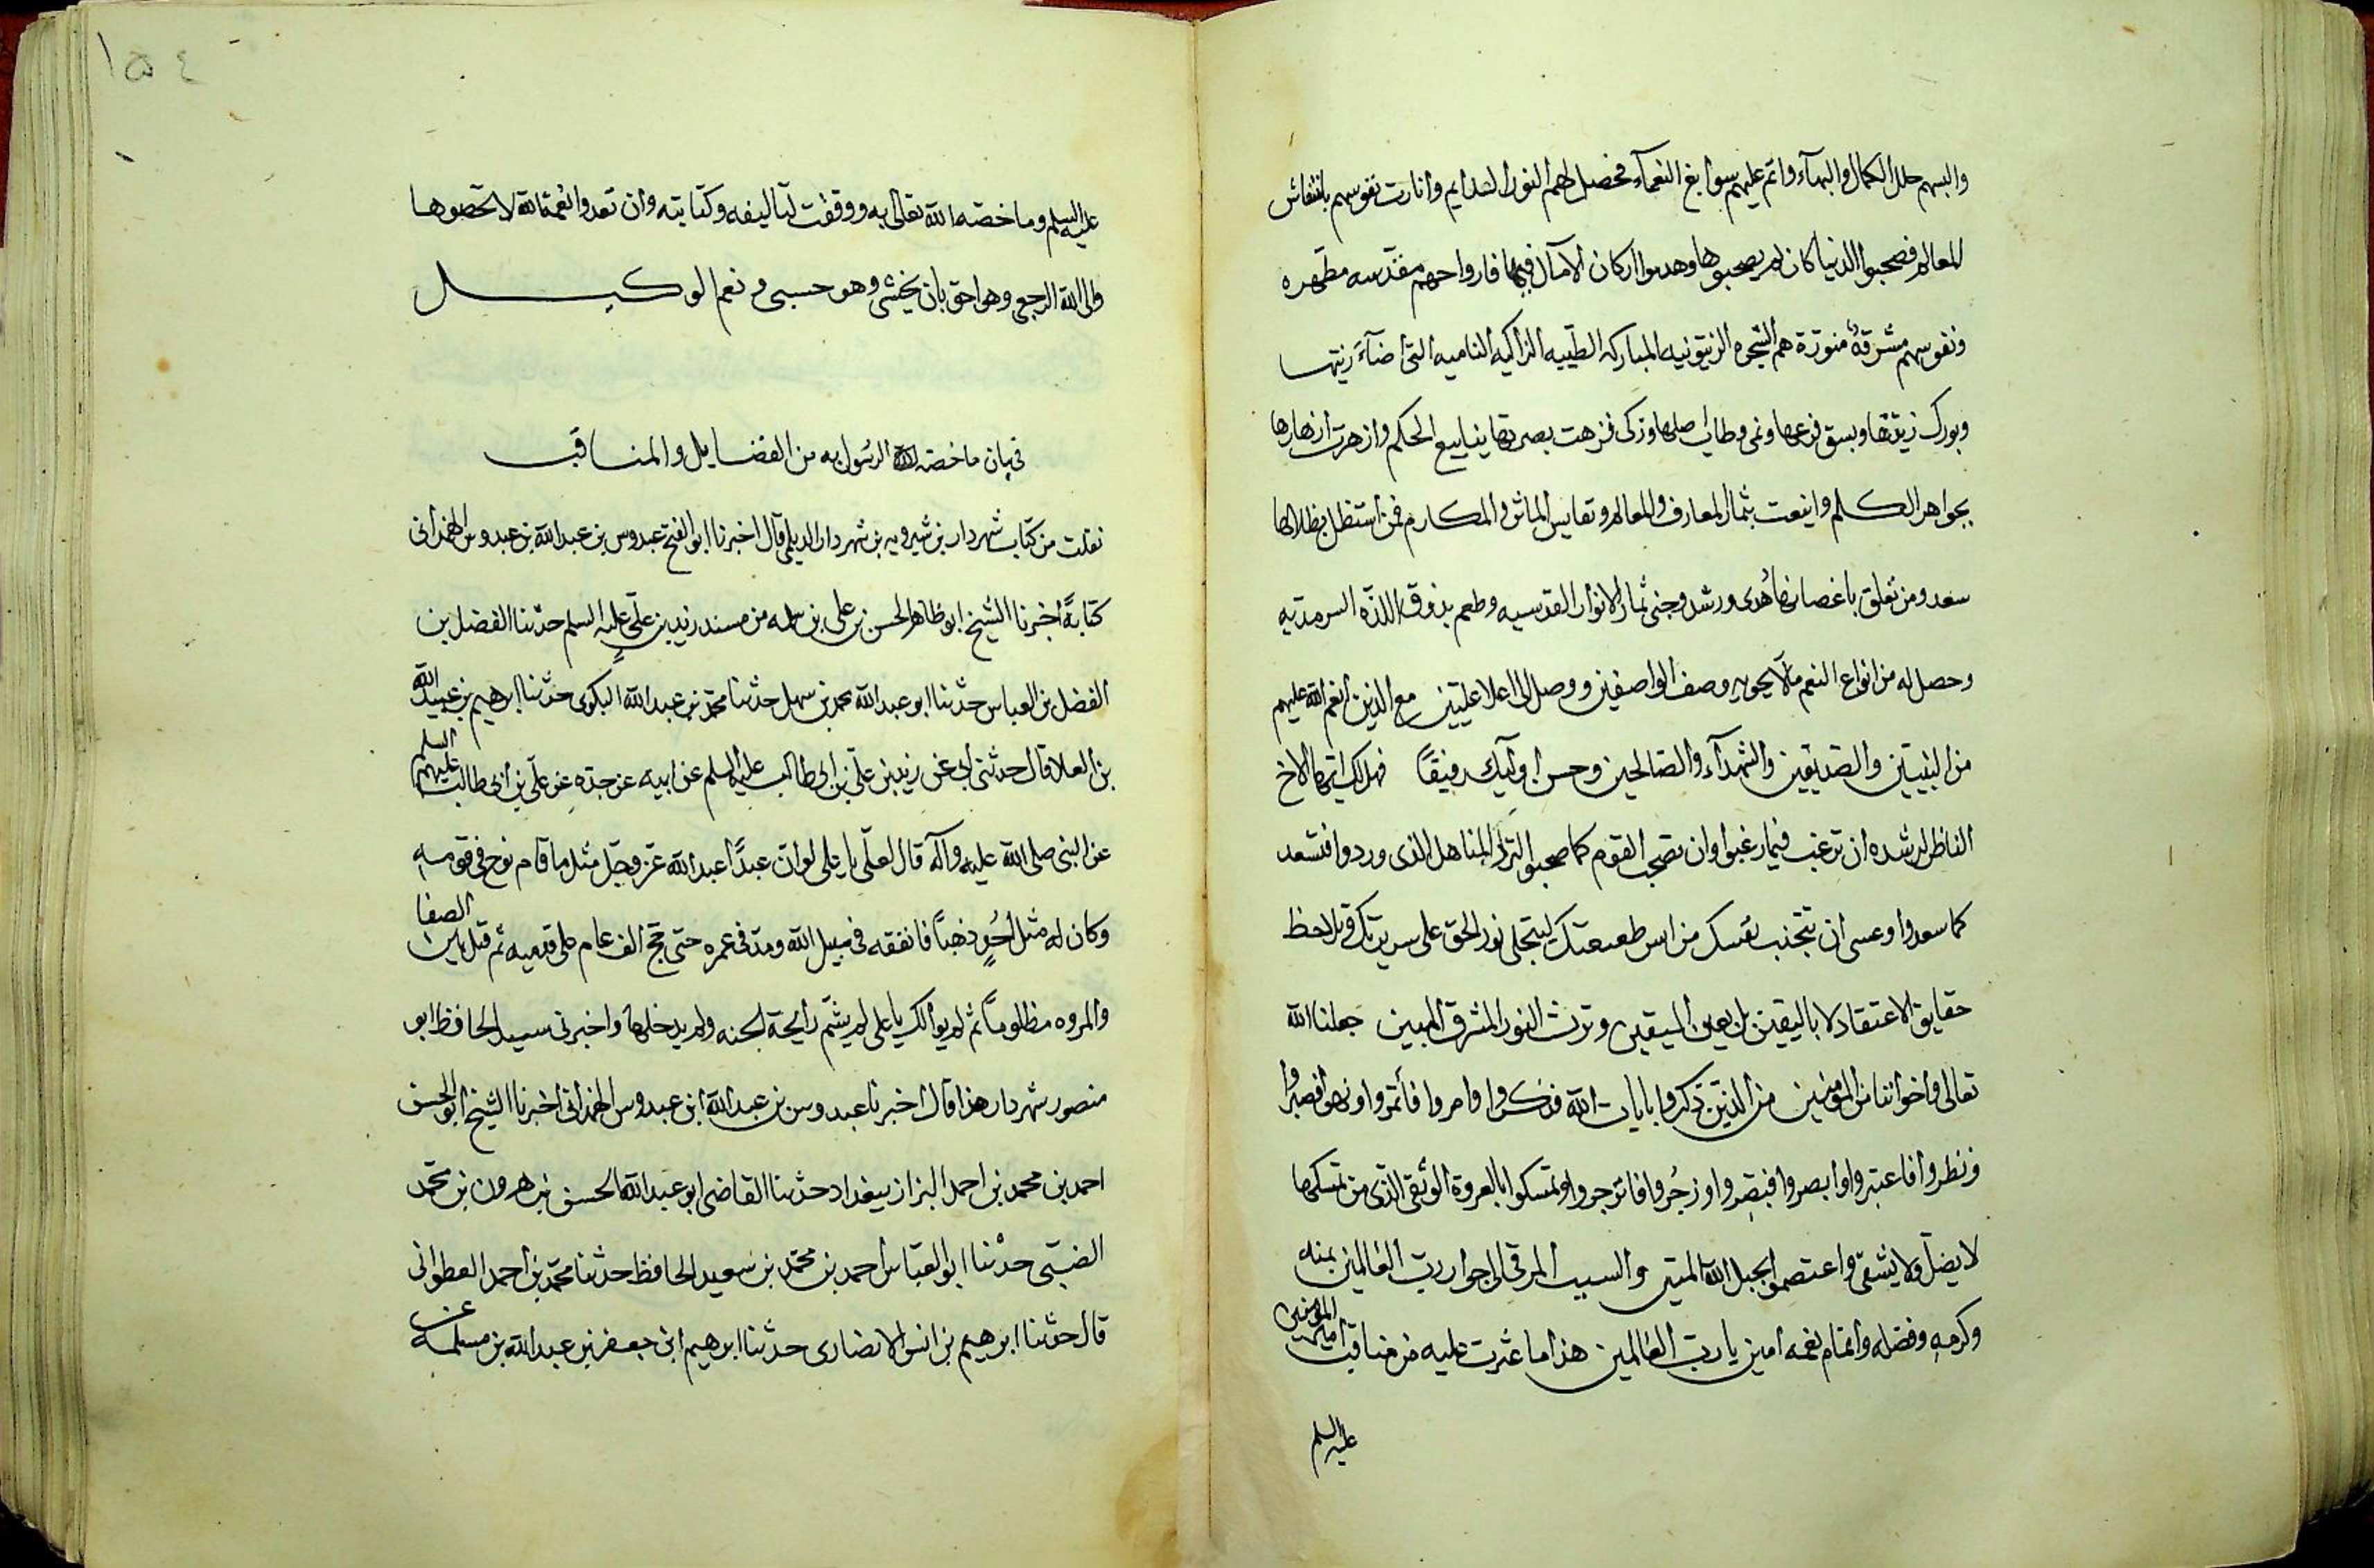 والبسهم حلل الكمال والبهآء واتم عليهم سوابغ النعمآء فحصل لهم النور الدايم وانارت نفوسهم بانتقاش
المعالم فصحبوا الدنيا كان لم يصحبوها وهدموا اركان الآمال فيها فارواحهم مقدسه مطهره
ونفوسهم مشرقة منورة هم الشجره الزيتونيه المباركه الطيبه الزاكيه الناميه التى اضآء زيتها
وبورك زيتها وبسق فرعها ونمى وطاب اصلها وزكى فزهت ينابيع الحكم وازهرت ازهارها
بجواهر الكلم واينعت ثمار المعارف والمعالم ونفايس الماثر والمكارم فمن استظل بظلالها
سعد ومن تعلق باغصانها هدى ورشد وجنى ثمار الانوار القدسيه وطعم بذوق اللذه السرمديه
وحصل له من انواع النعم مالا يحويه وصف الواصفين ووصل الى اعلا عليين مع الذين انعم الله عليهم
من النبيين والصديقين والشهدآء والصالحين وحسن اوليك رفيقًا فهل لك ايها الاخ
الناظر لرشده ان ترغب فيما رغبوا وان تصحب القوم كما صحبوا المناهل الذى وردوا فتسعد
كما سعدوا وعسى ان تتجنب نفسك من ليتجلى نور الحق على سريرتك وتلاحظ
حقايق الاعتقاد لا باليقين بل بعين اليقين وترث النور المشرق المبين جعلنا الله
تعالى واخواننا من المؤمنين من الذين ذكروا بايات الله فذكروا وامروا فأتمروا ونهوا فصبروا
ونظروا فاعتبروا وابصروا فتبصروا وزجروا فانزجروا وتمسكوا بالعروة الوثقى الذى من تمسك بها
لا يضل ولا يشقى واعتصموا بحبل الله المتين والسبب المرقى الى جوار رب العالمين بمنه
وكرمه وفضله واتمام نعمه امين يا رب العالمين هذا ما عثرت عليه من مناقب امير المؤمنين
عليه السلم
١٥٤
عليه السلم وما خصه الله تعالى به ووقفت لتاليفه وكتابته وان تعدوا نعمة الله لا تحصوها
والى الله الرجعى وهو احق بان يخشى وهو حسبى ونعم الوكيل
فى بيان ما خصه الرسول به من الفضايل والمناقب
نقلت من كتاب شهردار بن شيرويه بن شهردار الديلمى قال اخبرنا ابو الفتح عبدوس بن عبد الله بن عبدوس الهمدانى
كتابةً اخبرنا الشيخ ابو طاهر الحسن بن على بن سلمه من مسند زيد بن على عليه السلم حدثنا الفضل بن
الفضل بن العباس حدثنا ابو عبد الله محمد بن سهل حدثنا محمد بن عبد الله البكوى حدثنا ابرهيم بن عبيد الله
بن العلا قال حدثنى ابى عن زيد بن على بن ابى طالب عليه السلم عن ابيه عن جده عن على بن ابى طالب عليهم السلم
عن النبى صلى الله عليه وآله قال لعلى يا على لو ان عبدًا عبد الله عز وجل مثل ما قام نوح فى قومه
وكان له مثل أحُدٍ ذهباً فانفقه فى سبيل الله ومد فى عمره حتى حج الف عام على قدميه ثم قتل بين الصفا
والمروه مظلوماً ثم لم يوالك يا على لم يشم رايحة الجنه ولم يدخلها واخبرنى سيد الحافظ ابو
منصور شهردار هذا قال اخبرنا عبدوس بن عبد الله ابن عبدوس الهمدانى اخبرنا الشيخ ابو الحسن
احمد بن محمد بن احمد البزاز ببغداد حدثنا القاضى ابو عبد الله الحسن بن هرون بن محمد
الضبى حدثنا ابو العباس احمد بن محمد بن سعيد الحافظ حدثنا محمد بن احمد القطوانى
قال حدثنا ابرهيم بن انس الانصارى حدثنا ابرهيم ابن جعفر بن عبد الله بن مسلمه عن